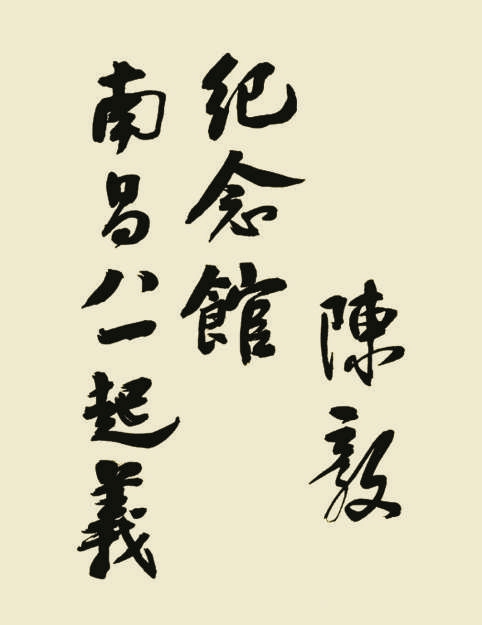 南昌八一起義
紀念館
陳毅